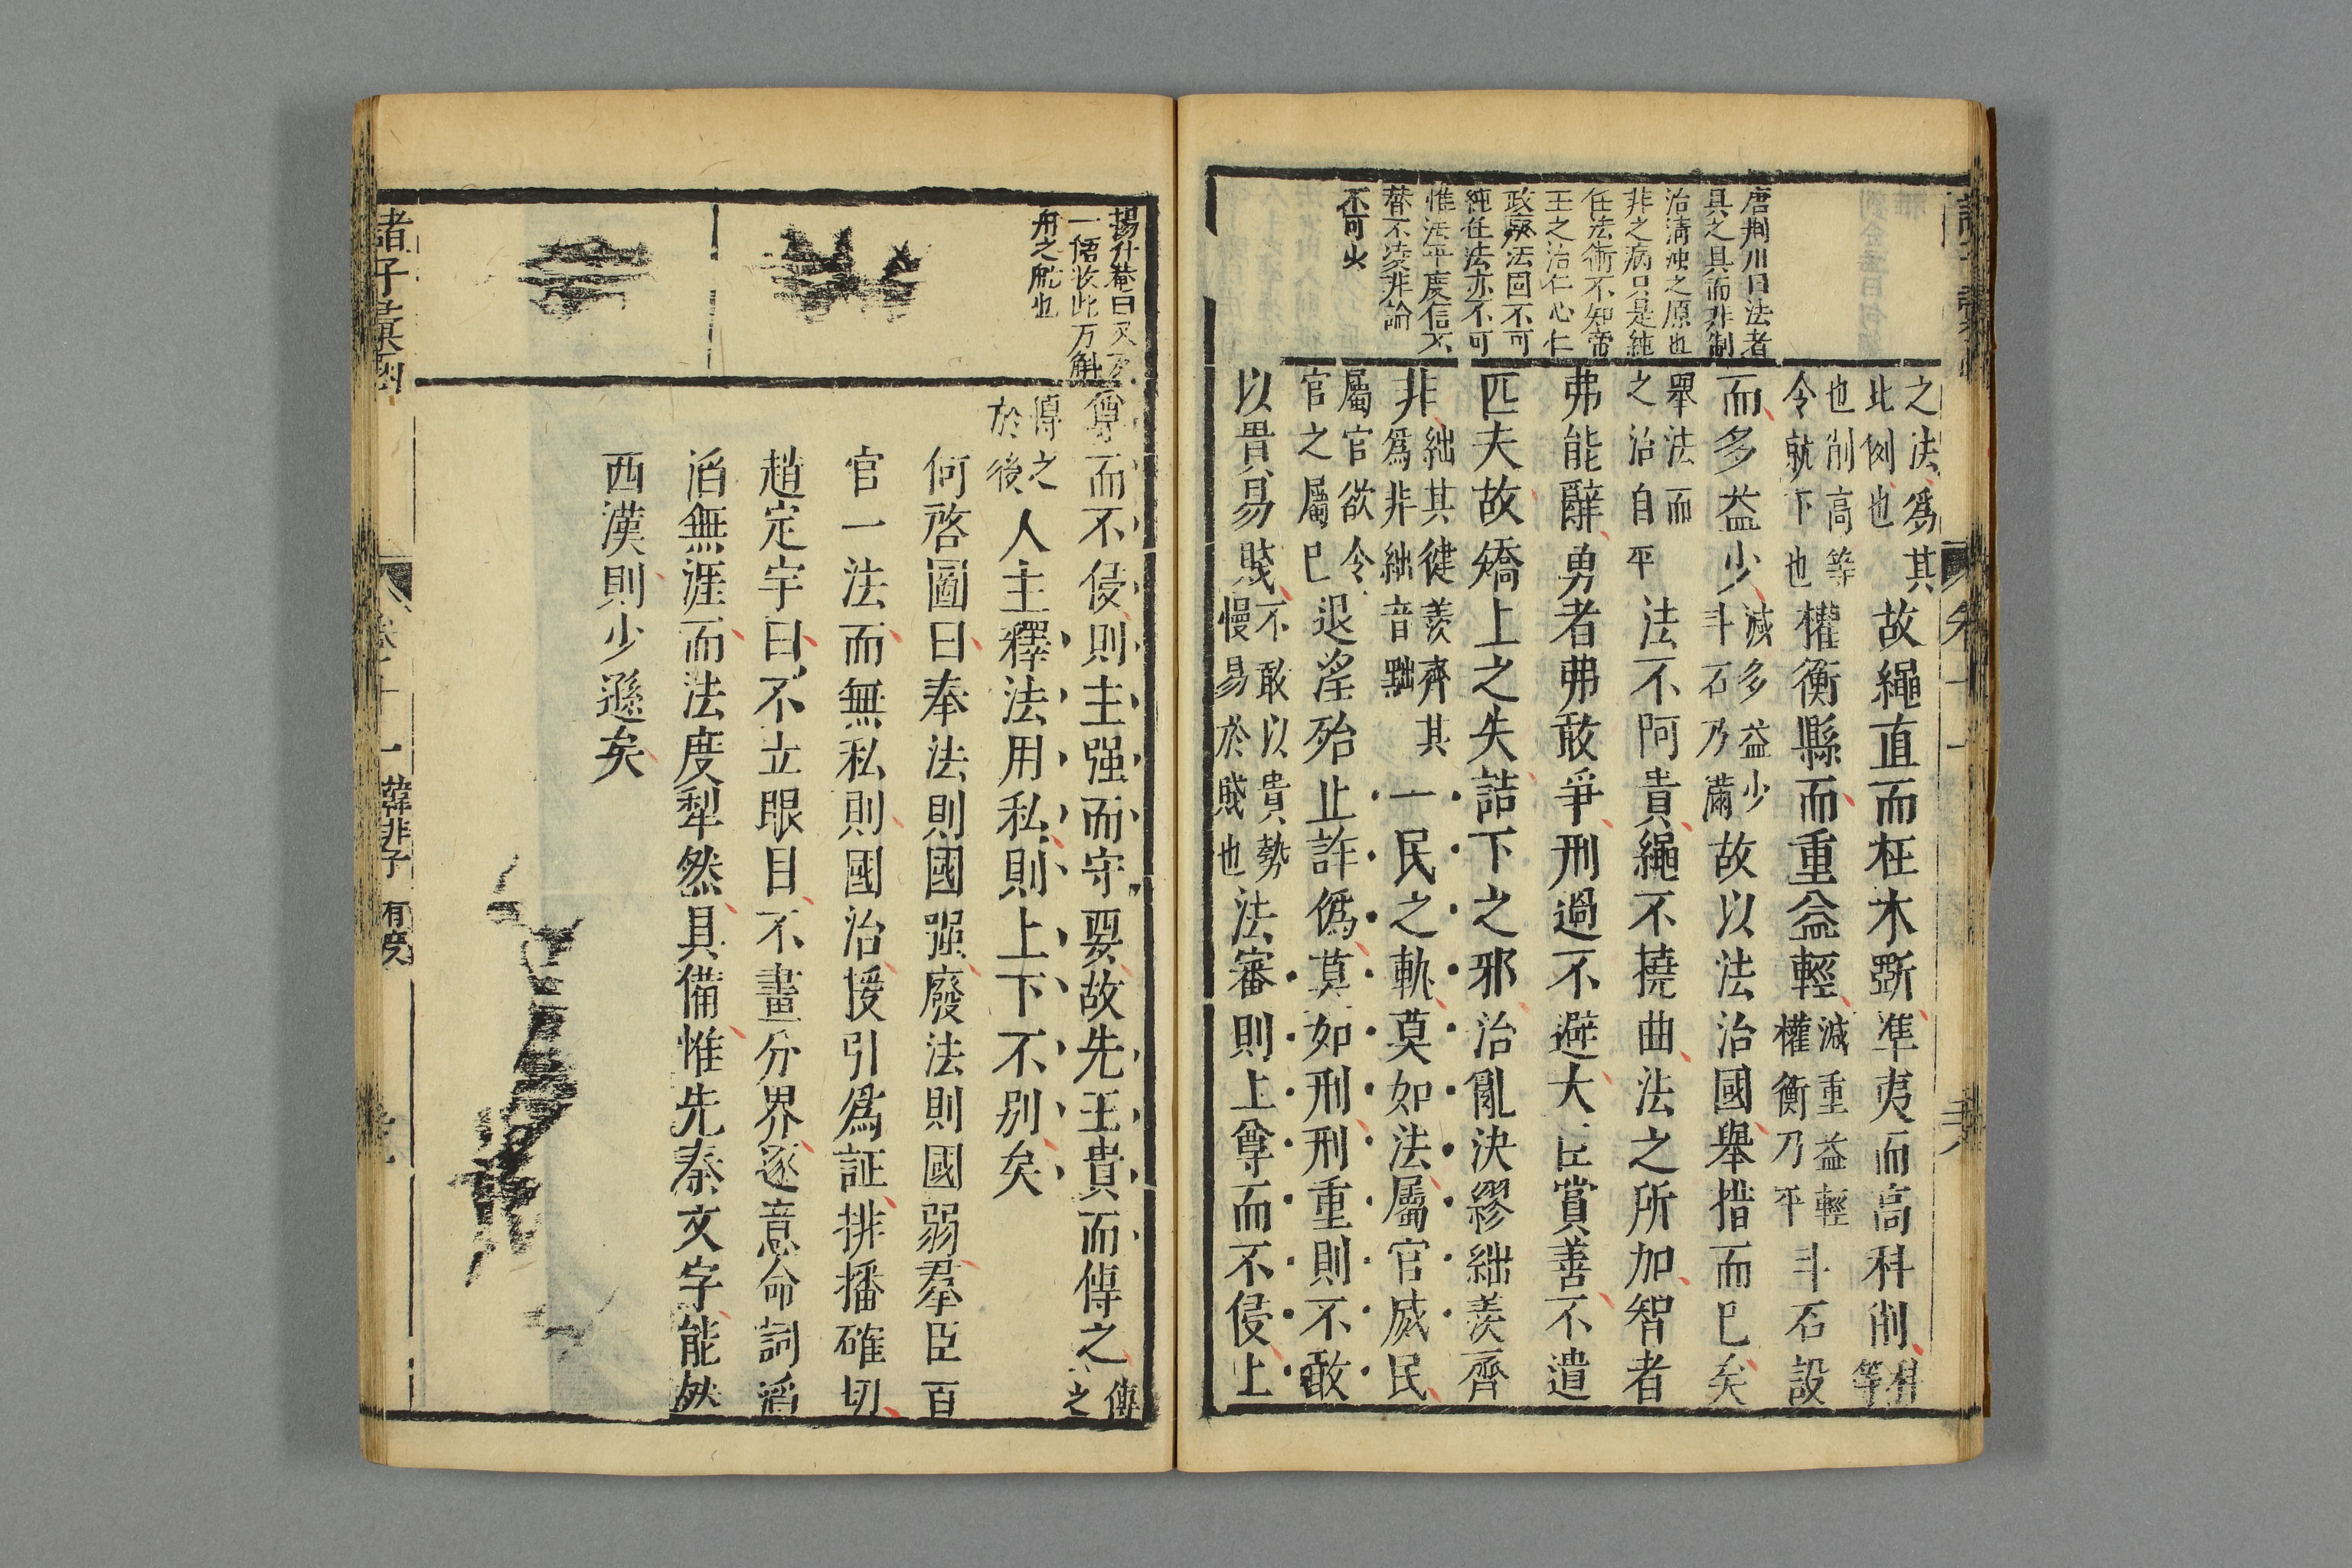 唐荆川曰法者
具之具而非制
治清濁之原也
非之病只是純
任法術不知帝
王之治仁心仁
政廢法固不可
純任法亦不可
惟法平度信不
替不淩非論
不可少
之法爲其
此例也
故繩直而枉木斲準夷而高科削
科
等
也削高等
令就下也
權衡縣而重益輕
減重益輕
權衡乃平
斗石設
而多益少
減多益少
斗石乃滿
故以法治國舉措而已矣
舉法而
之治自平
法不阿貴繩不撓曲法之所加智者
弗能辭勇者弗敢爭刑過不避大臣賞善不遺
匹夫故矯上之失詰下之邪治亂決繆絀羨齊
非
絀其健羨齊其
爲非絀音黜
一民之軌莫如法屬官威民
屬官欲令
官之屬已
退淫殆止詐僞莫如刑刑重則不敢
以貴易賤
不敢以貴勢
慢易於賤也
法審則上尊而不侵上
楊升菴曰又万
一信收此万斛
舟之舵也
尊而不侵則主强而守要故先王貴而傳之
傳
之
傳之
於後
人主釋法用私則上下不别矣
何啓圖曰奉法則國强廢法則國弱羣臣百
官一法而無私則國治援引爲証排播確切
趙定宇曰不立眼目不畫分界逐意命詞滔
滔無涯而法度犁然具備惟先秦文字能然
西漢則少遜矣
諸子彙函
卷十一
韓非子
有度